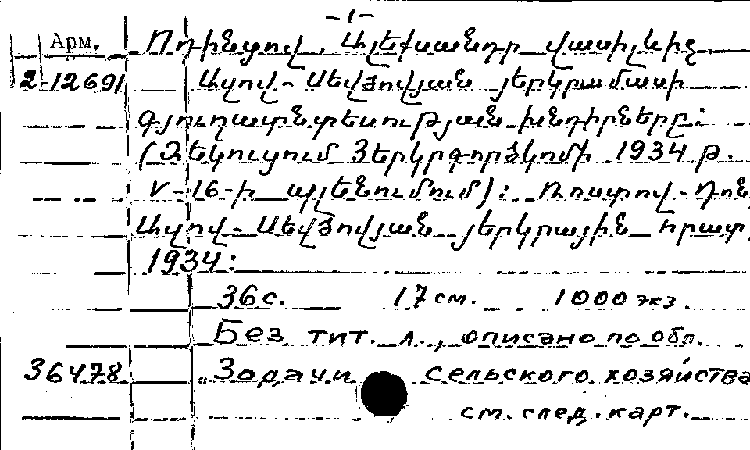 -1-
Арм. Ոդինցով, Ալեխսանդր վասիլևիչ
2-12691 Ազով-Սեվծովյան յերկրամասի
գյուղատնտեսության խնդիրները:
(Զեկուցում Յերկրգործկոմի 1934 թ.
V-16-ի պլենումում): Ռոստով-Դոն,
Ազով-Սեվծովյան յերկրային հրատ.
1934:
36 с. 17 см. 1000 экз.
Без тит. л., описано по обл.
36478 "Задачи сельского хозяйства
см. след. карт.